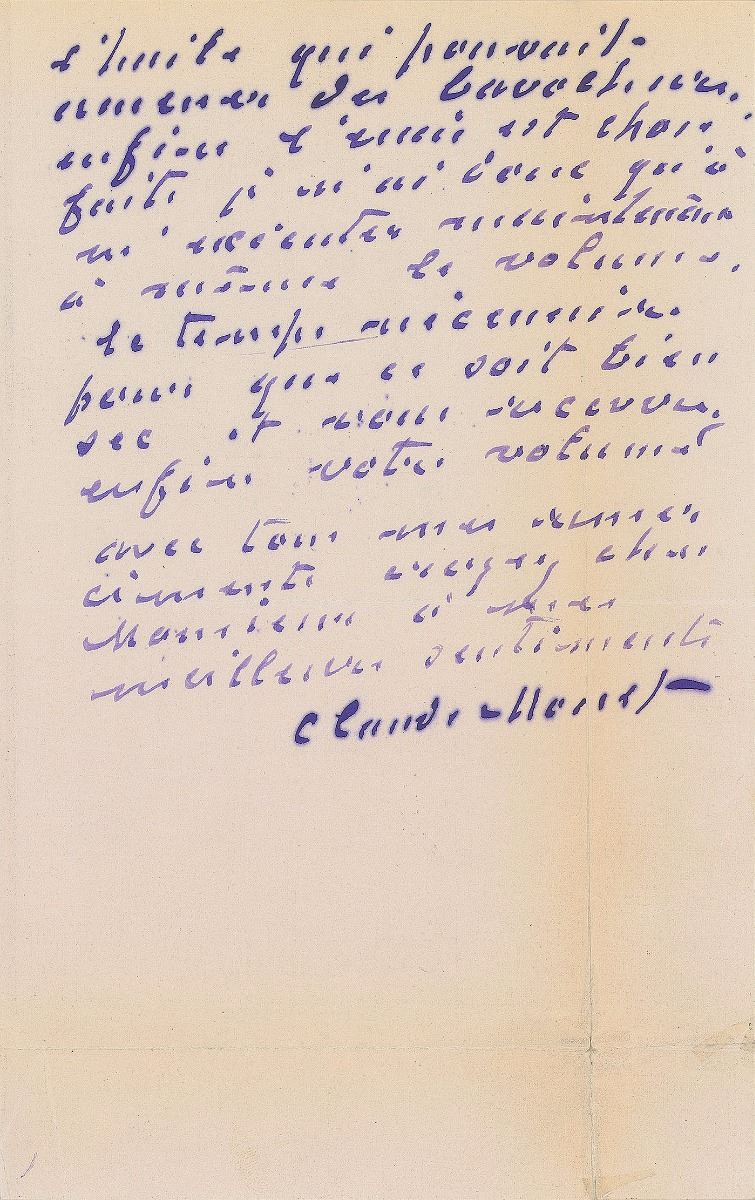 l'huile qui pouvait
amener des bavochures,
enfin l'essai est chose
faite je n'ai donc qu'à
m'exécuter maintenant
à même le volume,
le temps nécessaire
pour que ce soit bien
sec et vous recevrez
enfin votre volume
avec tous mes remer
ciements croyez cher
Monsieur à mes
meilleurs sentiments
Claude Monet